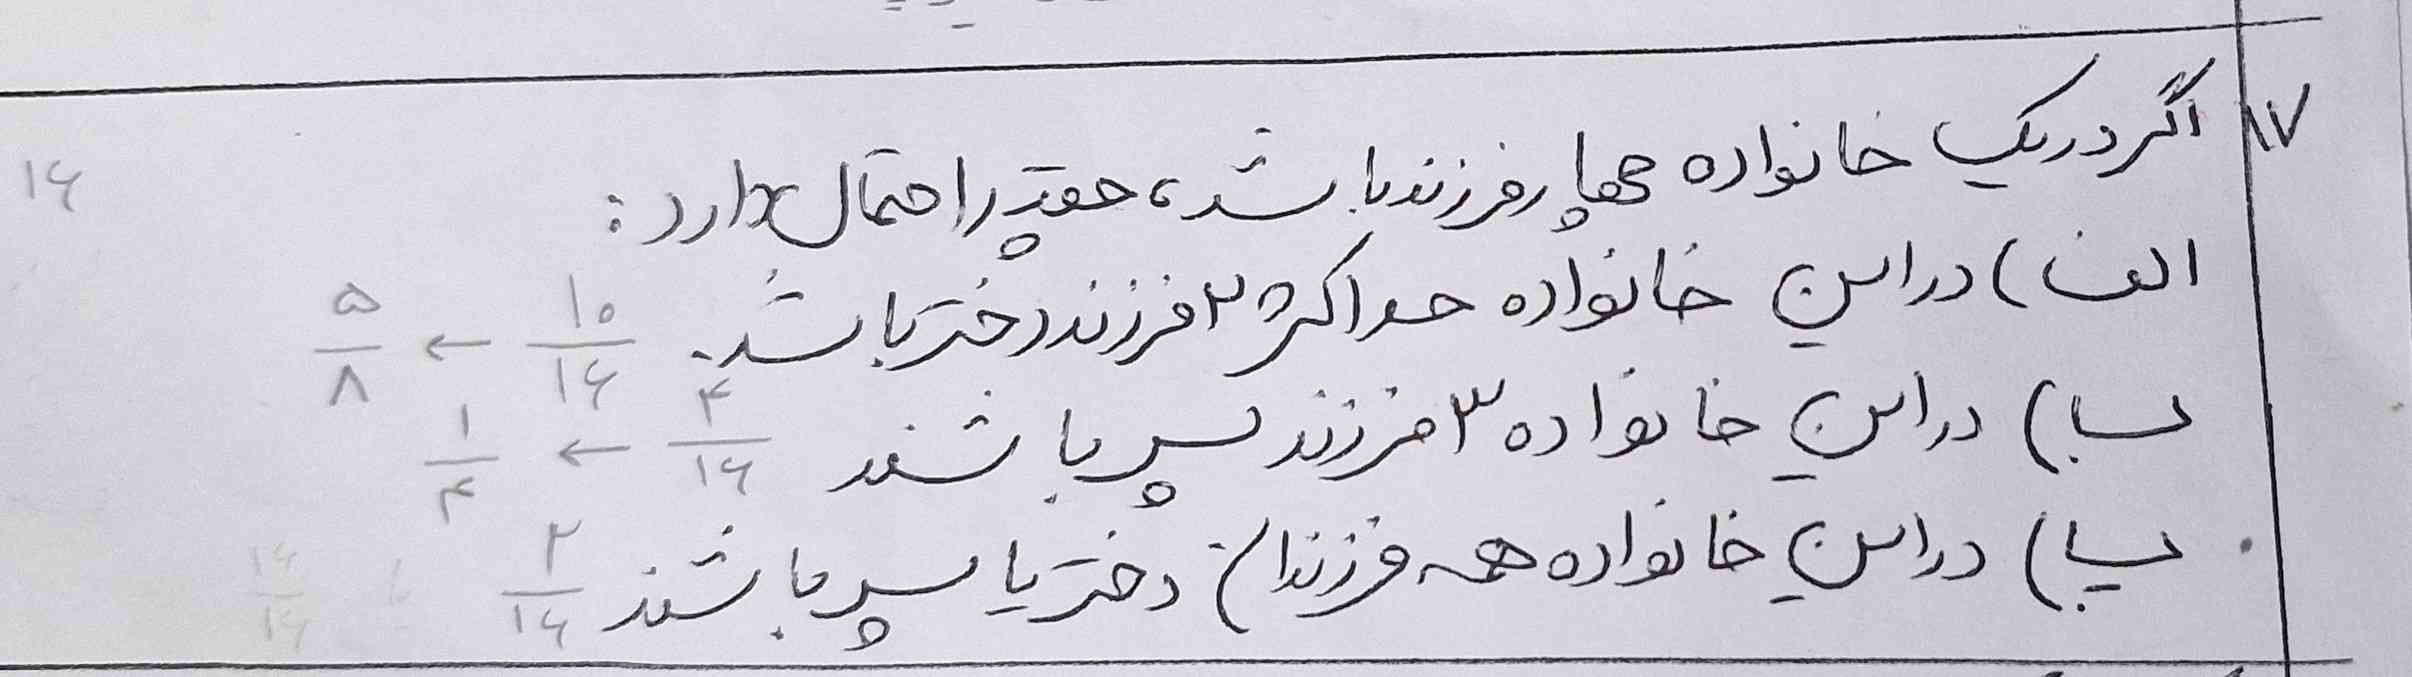 ۱۷ اگر در یک خانواده چهار فرزند باشد، چقدر احتمال دارد:
۱۶
الف) در این خانواده حداکثر ۲ فرزند دختر باشد. ۱۰/۱۶ ← ۵/۸
ب) در این خانواده ۳ فرزند پسر باشند ۴/۱۶ ← ۱/۴
پ) در این خانواده همه فرزندان دختر یا پسر باشند ۲/۱۶